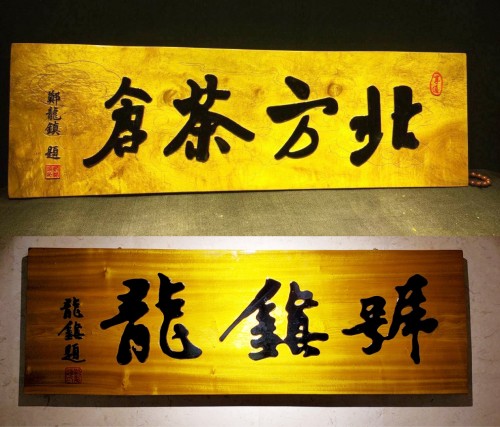 北方茶倉
鄭龍鎮 題
龍鎮號
龍鎮題